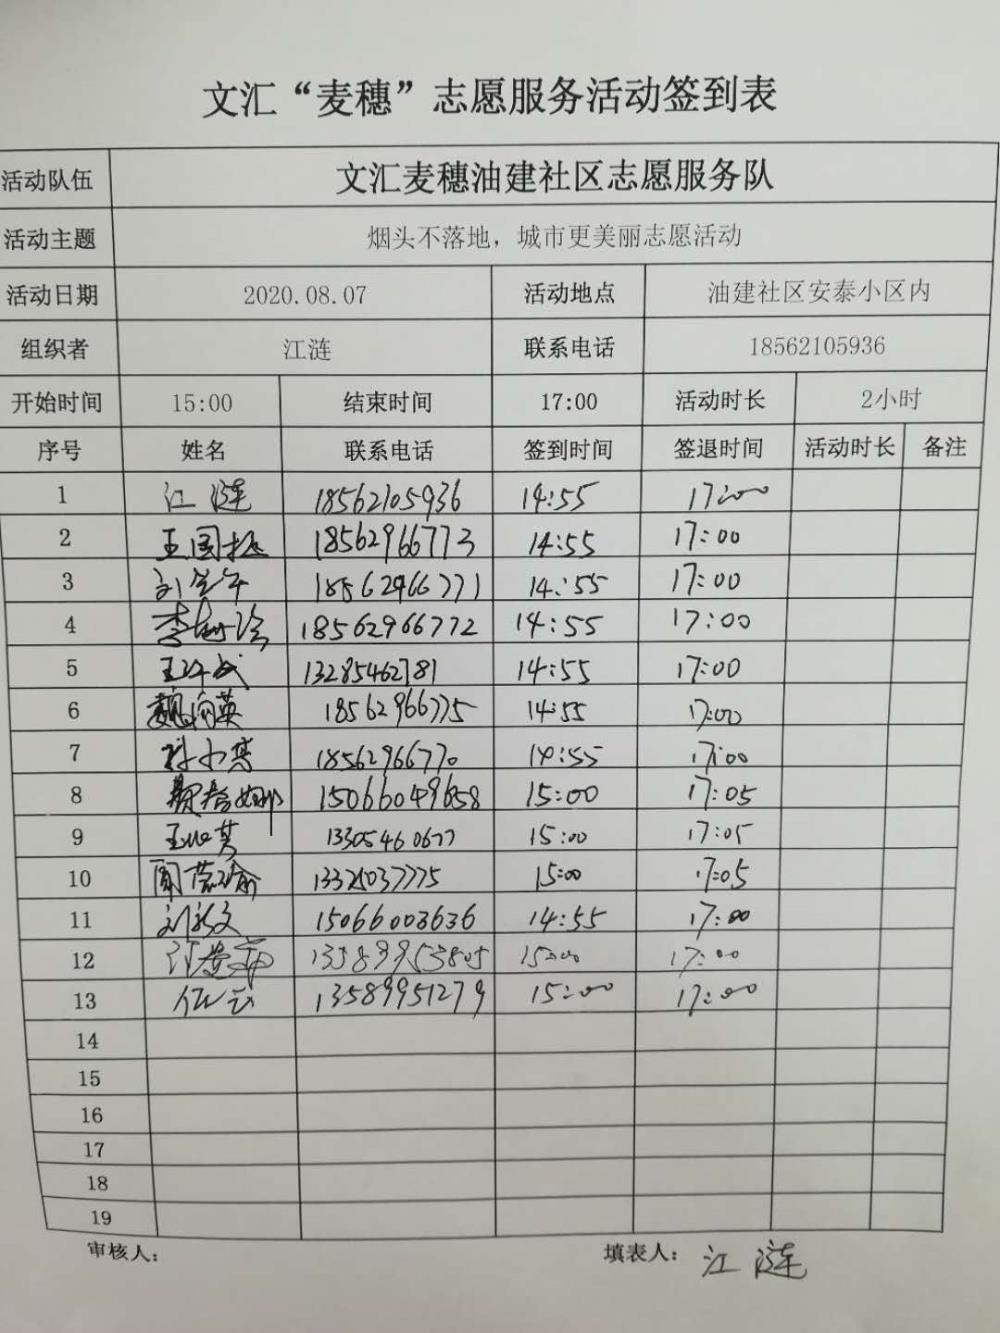 文汇“麦穗”志愿服务活动签到表
活动队伍 文汇麦穗油建社区志愿服务队
活动主题 烟头不落地，城市更美丽志愿活动
活动日期 2020.08.07 活动地点 油建社区安泰小区内
组织者 江涟 联系电话 18562105936
开始时间 15:00 结束时间 17:00 活动时长 2小时
序号 姓名 联系电话 签到时间 签退时间 活动时长 备注
1 江涟 18562105936 14:55 17:00
2 18562966773 14:55 17:00
3 18562966771 14:55 17:00
4 18562966772 14:55 17:00
5 13285462781 14:55 17:00
6 魏向英 18562966775 14:55 17:00
7 18562966770 14:55 17:00
8 15:00 17:05
9 13305460677 15:00 17:05
10 15:00 17:05
11 15066003636 14:55 17:00
12 15:00 17:00
13 任云 13589951279 15:00 17:00
14
15
16
17
18
19
审核人： 填表人： 江涟